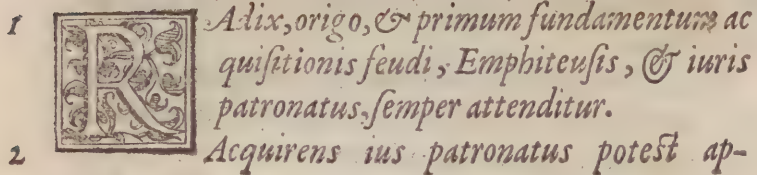 1 RAdix, origo, & primum fundamentum ac
quiſitionis feudi, Emphiteuſis, & iuris
patronatus, ſemper attenditur.
2 Acquirens ius patronatus poteſt ap-